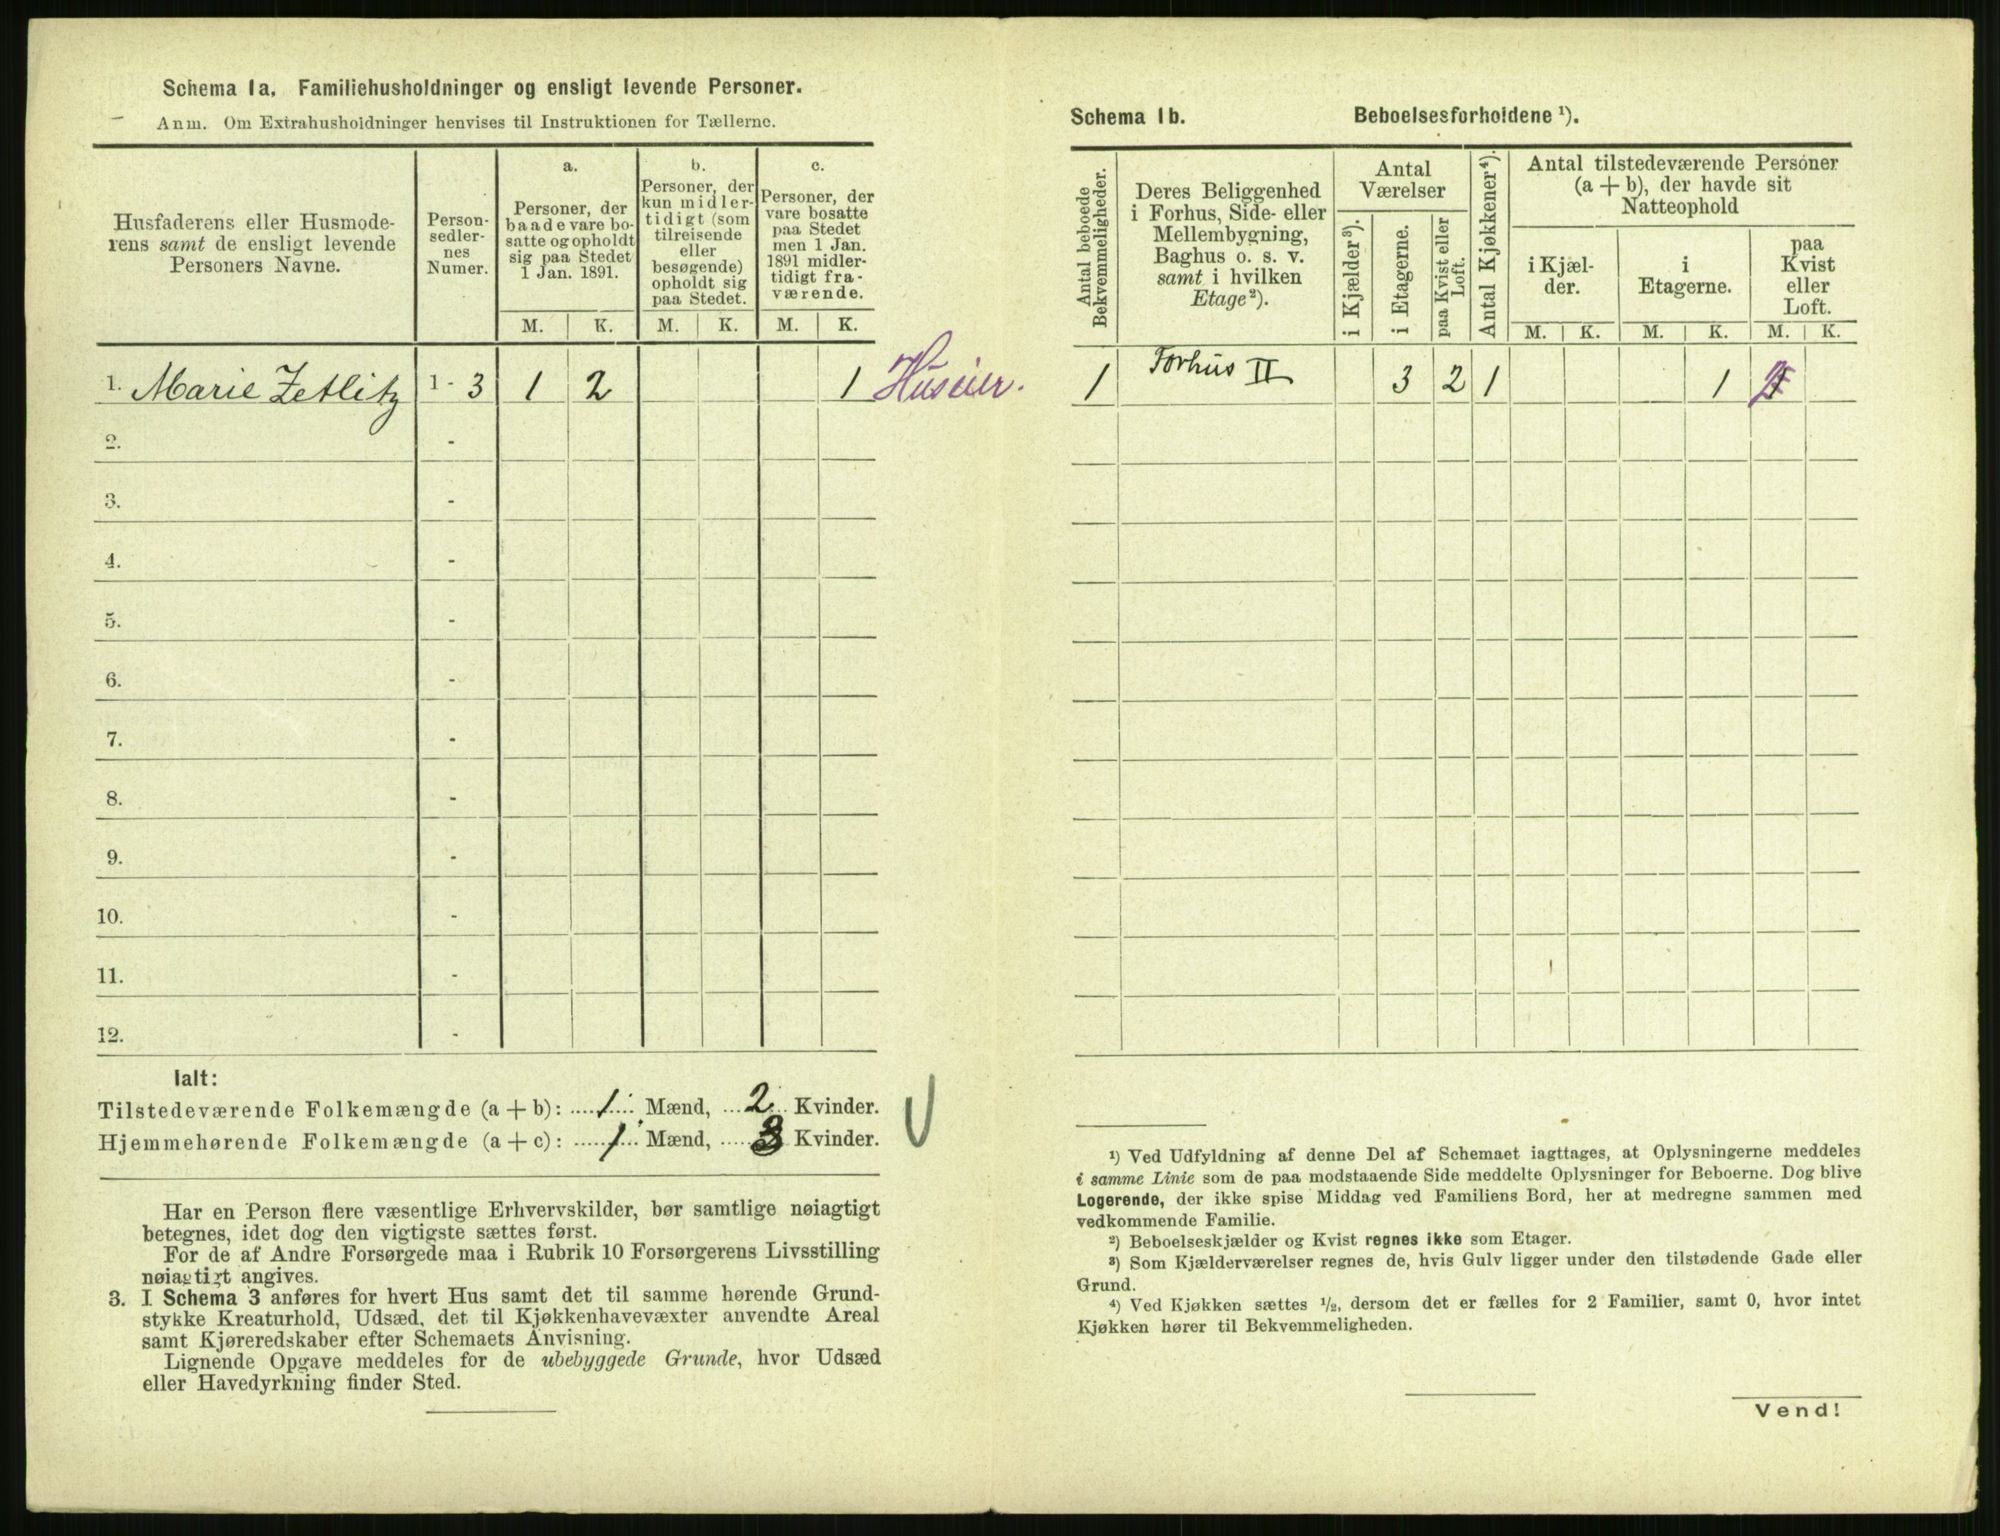 Schema 1a. Familiehusholdninger og ensligt levende Personer.
Anm. Om Extrahusholdninger henvises til Instruktionen for Tællerne.
Husfaderens eller Husmode-
rens samt de ensligt levende
Personers Navne.
Person-
sedler-
nes
Numer.
a.
Personer, der
baade vare bo-
satte og opholdt
sig paa Stedet
1 Jan. 1891.
b.
Personer, der
kun midler-
tidigt (som
tilreisende
eller
besøgende)
opholdt sig
paa Stedet.
c.
Personer, der
vare bosatte
paa Stedet
men 1 Jan.
1891 midler-
tidigt fra-
værende.
M. K. M. K. M. K.
1. Marie Zetlitz 1 - 3 1 2 1 Huseier.
2. -
3. -
4. -
5. -
6. -
7. -
8. -
9. -
10. -
11. -
12. -
Ialt:
Tilstedeværende Folkemængde (a + b): 1 Mænd, 2 Kvinder.
Hjemmehørende Folkemængde (a + c): 1 Mænd, 3 Kvinder.
Har en Person flere væsentlige Erhvervskilder, bør samtlige nøiagtigt
betegnes, idet dog den vigtigste sættes først.
For de af Andre Forsørgede maa i Rubrik 10 Forsørgerens Livsstilling
nøiagtigt angives.
3. I Schema 3 anføres for hvert Hus samt det til samme hørende Grund-
stykke Kreaturhold, Udsæd, det til Kjøkkenhavevæxter anvendte Areal
samt Kjøreredskaber efter Schemaets Anvisning.
Lignende Opgave meddeles for de ubebyggede Grunde, hvor Udsæd
eller Havedyrkning finder Sted.
Schema 1b. Beboelsesforholdene ¹).
Antal beboede
Bekvemmeligheder.
Deres Beliggenhed
i Forhus, Side- eller
Mellembygning,
Baghus o. s. v.
samt i hvilken
Etage²).
Antal
Værelser
i Kjælder³).
i Etagerne.
paa Kvist eller
Loft.
Antal Kjøkkener⁴).
Antal tilstedeværende Personer
(a + b), der havde sit
Natteophold
i Kjæl-
der.
i
Etagerne.
paa
Kvist
eller
Loft.
M. K. M. K. M. K.
1 Forhus II 3 2 1 1 2
¹) Ved Udfyldning af denne Del af Schemaet iagttages, at Oplysningerne meddeles
i samme Linie som de paa modstaaende Side meddelte Oplysninger for Beboerne. Dog blive
Logerende, der ikke spise Middag ved Familiens Bord, her at medregne sammen med
vedkommende Familie.
²) Beboelseskjælder og Kvist regnes ikke som Etager.
³) Som Kjælderværelser regnes de, hvis Gulv ligger under den tilstødende Gade eller
Grund.
⁴) Ved Kjøkken sættes ½, dersom det er fælles for 2 Familier, samt 0, hvor intet
Kjøkken hører til Bekvemmeligheden.
Vend!